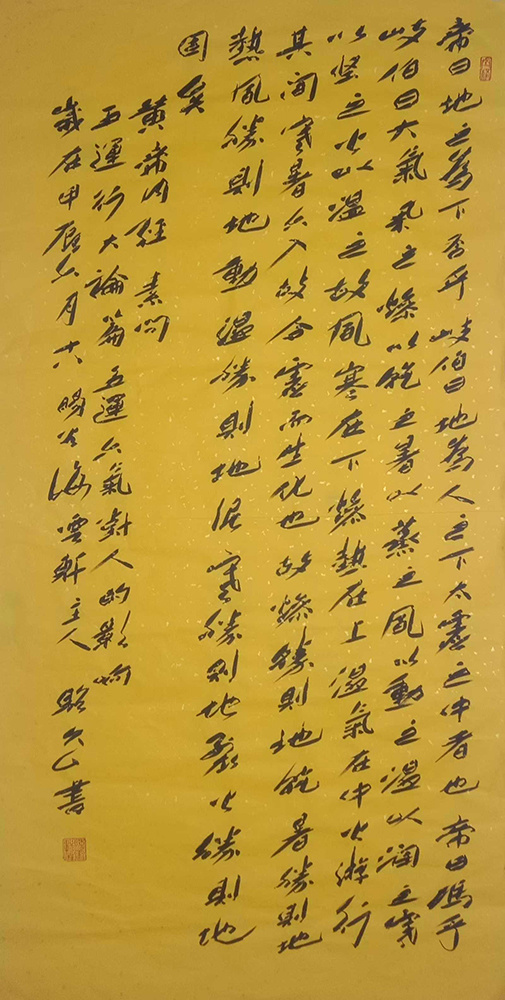 帝曰地之為下否乎岐伯曰地為人之下太虛之中者也帝曰馮乎
岐伯曰大氣舉之燥以乾之暑以蒸之風以動之濕以潤之寒
以堅之火以溫之故風寒在下燥熱在上濕氣在中火遊行
其間寒暑六入故令虛而生化也故燥勝則地乾暑勝則地
熱風勝則地動濕勝則地泥寒勝則地裂火勝則地
固矣
黃帝內經 素問
五運行大論篇五運六氣對人的影响
歲在甲辰六月十六海雲軒主人書